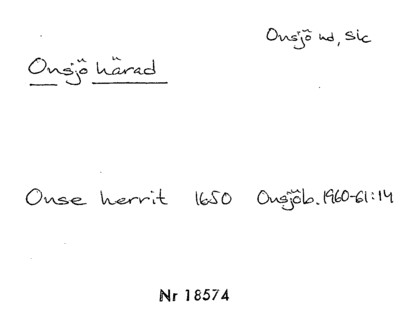 Onsjö hd, Sk
Onsjö härad
Onse herrit 1650 Onsjöb. 1960-61:14
Nr 18574